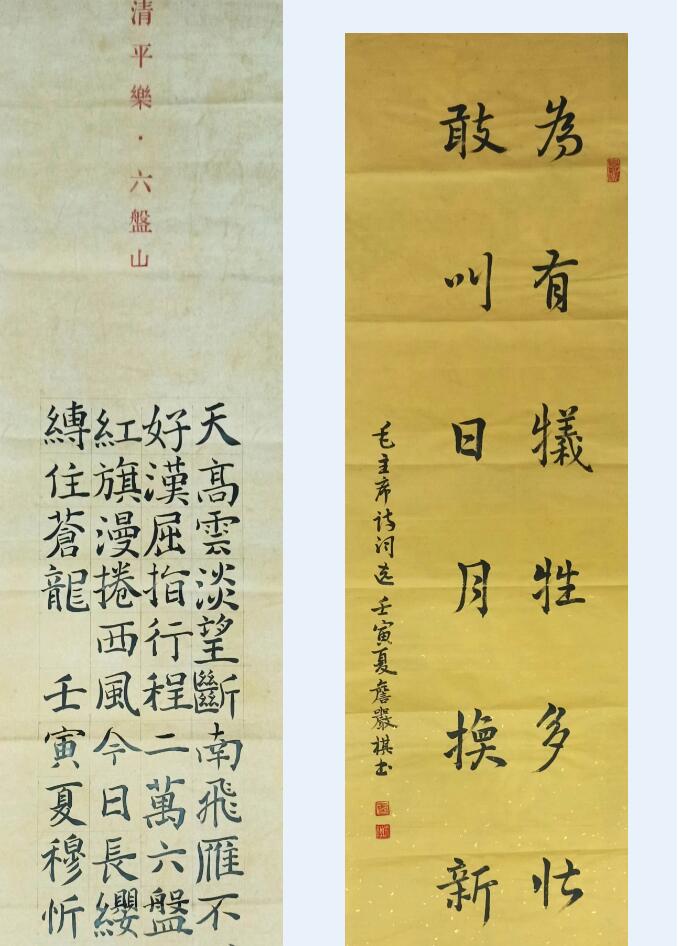 清平樂·六盤山
天高雲淡望斷南飛雁不
好漢屈指行程二萬六盤
紅旗漫捲西風今日長纓
縛住蒼龍 壬寅夏穆忻
為有犧牲多壮
敢叫日月換新
毛主席诗词选 壬寅夏詹嚴棋书